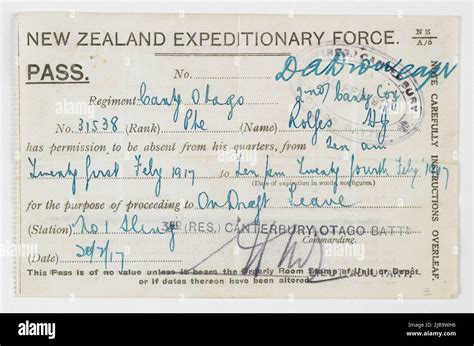 NEW ZEALAND EXPEDITIONARY FORCE.
N Z
A/5
PASS.
No.
Regiment: Canty Otago 2nd Canty Coy
No. 31538 (Rank) Pte (Name) Rolfes HJ
has permission to be absent from his quarters, from 1 am
Twenty first Feby 1917 to ten pm Twenty fourth Feby 1917
(Date of expiration in words, not figures.)
for the purpose of proceeding to On Draft Leave
(Station) No 1 Sling 3RD (RES.) CANTERBURY, OTAGO BATTN
Commanding.
(Date) 20/2/17
This Pass is of no value unless it bears the Orderly Room Stamp of Unit or Depôt,
or if dates thereon have been altered.
NOTE CAREFULLY INSTRUCTIONS OVERLEAF.
(RES.)
alamy
Image ID: 2JR9WH6
www.alamy.com